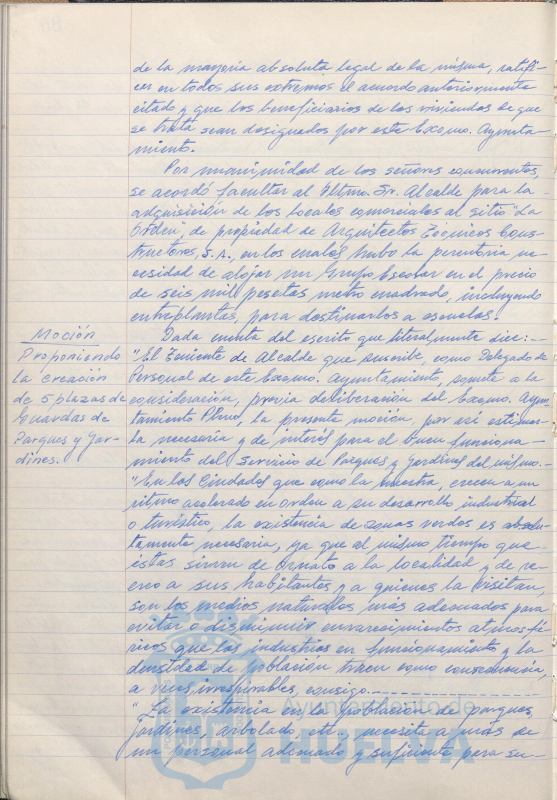 de la mayoría absoluta legal de la misma, ratifi-
car en todos sus extremos el acuerdo anteriormente
citado y que los beneficiarios de las viviendas de que
se trata sean designados por este Excmo. Ayunta-
miento.
Por unanimidad de los señores concurrentes,
se acordó facultar al Iltmo. Sr. Alcalde para la
adquisición de los locales comerciales al sitio "La
Orden", de propiedad de Arquitectos Técnicos Cons-
tructores, S.A., en los cuales hubo la perentoria ne-
cesidad de alojar un Grupo Escolar en el precio
de seis mil pesetas metro cuadrado, incluyendo
entreplantas, para destinarlos a escuelas.
Moción
Proponiendo
la creación
de 5 plazas de
Guardas de
Parques y Jar-
dines.
Dada cuenta del escrito que literalmente dice:
"El Teniente de Alcalde que suscribe, como Delegado de
Personal de este Excmo. Ayuntamiento, somete a la
consideración, previa deliberación del Excmo. Ayun-
tamiento Pleno, la presente moción, por así estimar-
la necesaria y de interés para el buen funciona-
miento del Servicio de Parques y Jardines del mismo.-
"En las Ciudades que como la nuestra, crecen a un
ritmo acelerado en orden a su desarrollo industrial
o turístico, la existencia de zonas verdes es absolu-
tamente necesaria, ya que al mismo tiempo que
éstas sirven de Ornato a la localidad y de re-
creo a sus habitantes y a quienes la visitan,
son los medios naturales más adecuados para
evitar o disminuir enrarecimientos atmosfé-
ricos que las industrias en funcionamiento y la
densidad de población traen como consecuencia,
a veces, irrespirables, consigo.
"La existencia en la población de parques,
jardines, arbolado, etc., necesita a más de
un personal adecuado y suficiente para su-
Ayuntamiento de
HUELVA